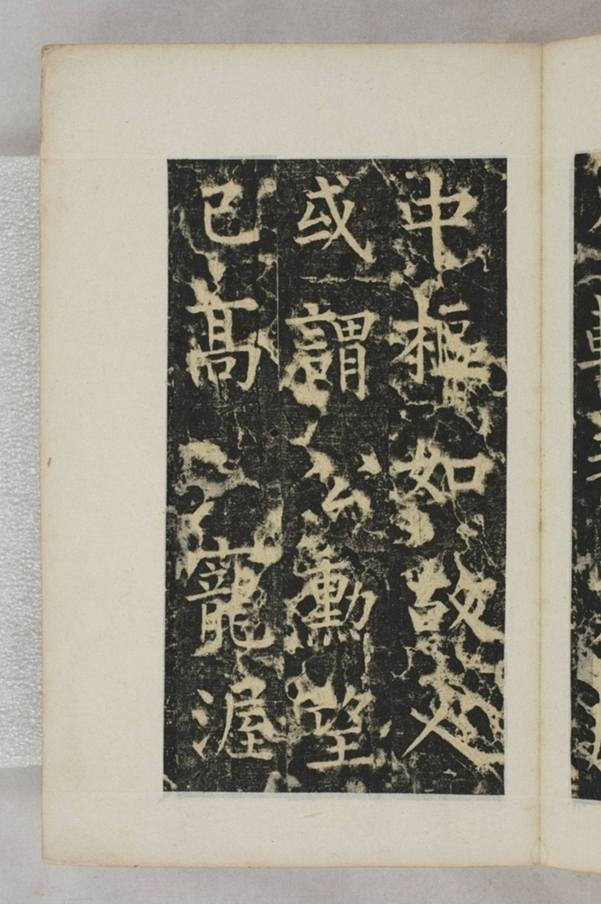 中樞如故人
或謂公勳望
已高寵渥